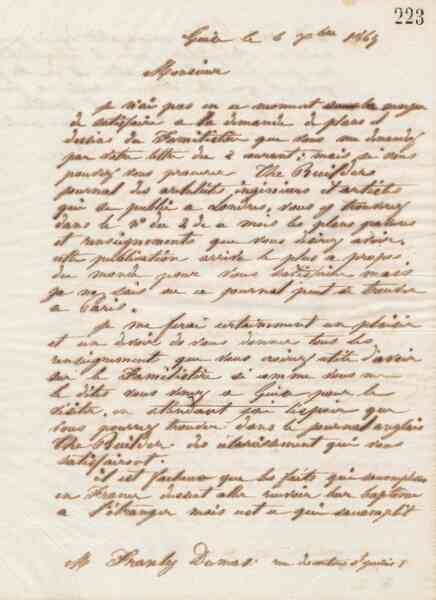 223
Guise le 6 7bre 1865
Monsieur
Je n'ai pas en ce moment le moyen
de satisfaire a la demande de plans et
dessins du Familistère que vous me demandez
par votre lettre du 2 courant; mais si vous
pouvez vous procurer The Builder
journal des architectes ingénieurs et artistes
qui se publie a Londres, vous y trouverez
dans le n° du 2 de ce mois les plans gravures
et renseignements que vous désirez avoir,
cette publication arrive le plus a propos
du monde pour vous satisfaire mais
je ne sais ou ce journal peut se trouver
a Paris.
Je me ferai certainement un plaisir
et un devoir de vous donner tous les
renseignements que vous croirez utile d'avoir
sur le Familistère si comme vous me
le dites vous venez a Guise pour le
visiter, en attendant j'ai l'espoir que
vous pourrez trouver dans le journal anglais
The Builder des éclaircissement qui vous
satisfairont.
il est facheux que les faits qui s'accomplissent
en France aient aller recevoir leur baptème
a l'étranger mais est ce qui s'accomplit
Mr Franky Dumas